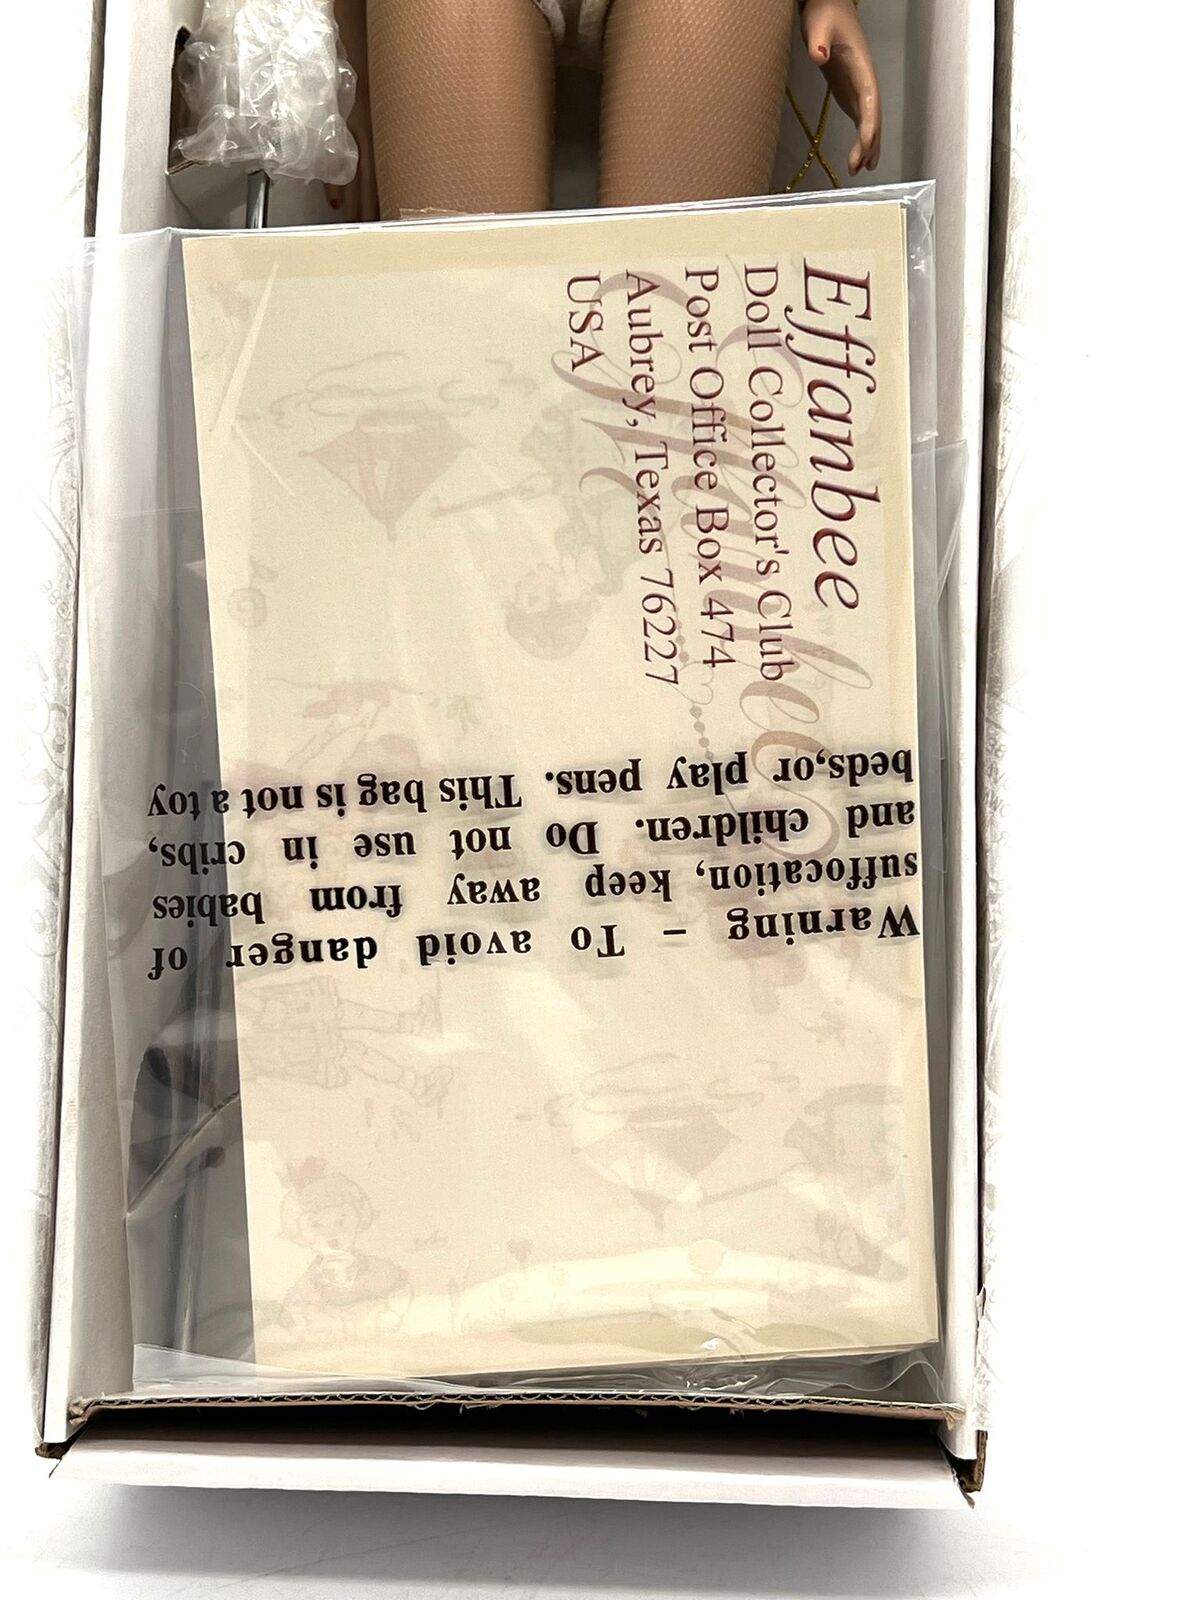 Effanbee
Doll Collector's Club
Post Office Box 474
Aubrey, Texas 76227
USA
Effanbee
Warning – To avoid danger of
suffocation, keep away from babies
and children. Do not use in cribs,
beds,or play pens. This bag is not a toy